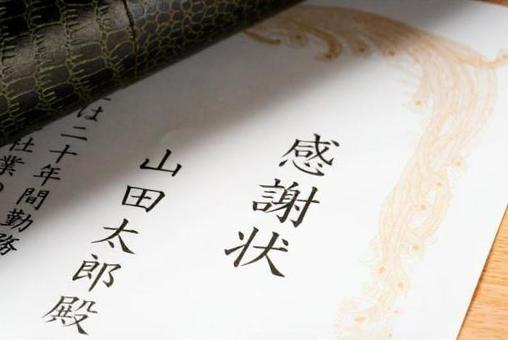 感謝状
山田太郎殿
は二十年間勤務
社業の